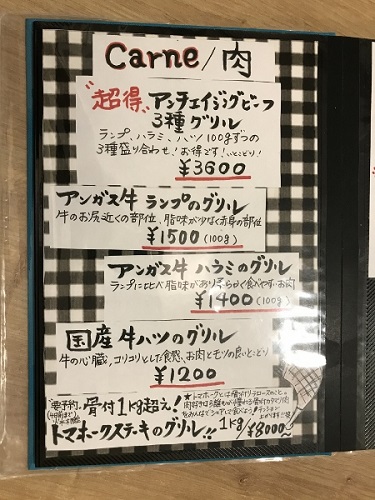 Carne/肉
"超得" アンチエイジングビーフ
3種グリル
ランプ、ハラミ、ハツ 100gずつの
3種盛り合わせ！お得です！いいとこどり！
¥3600
アンガス牛 ランプのグリル
牛のお尻近くの部位、脂味が少なく赤身の部位
¥1500(100g)
アンガス牛 ハラミのグリル
ランプに比べ脂味があり柔らかく食べやすいお肉
¥1400(100g)
国産 牛ハツのグリル
牛の心臓、コリコリとした食感、お肉とモツの良いとこどり
¥1200
要予約 骨付1kg超え！
★トマホークとは骨付リブロースのこと。
トマホークステーキのグリル!! 1kg ¥8000〜